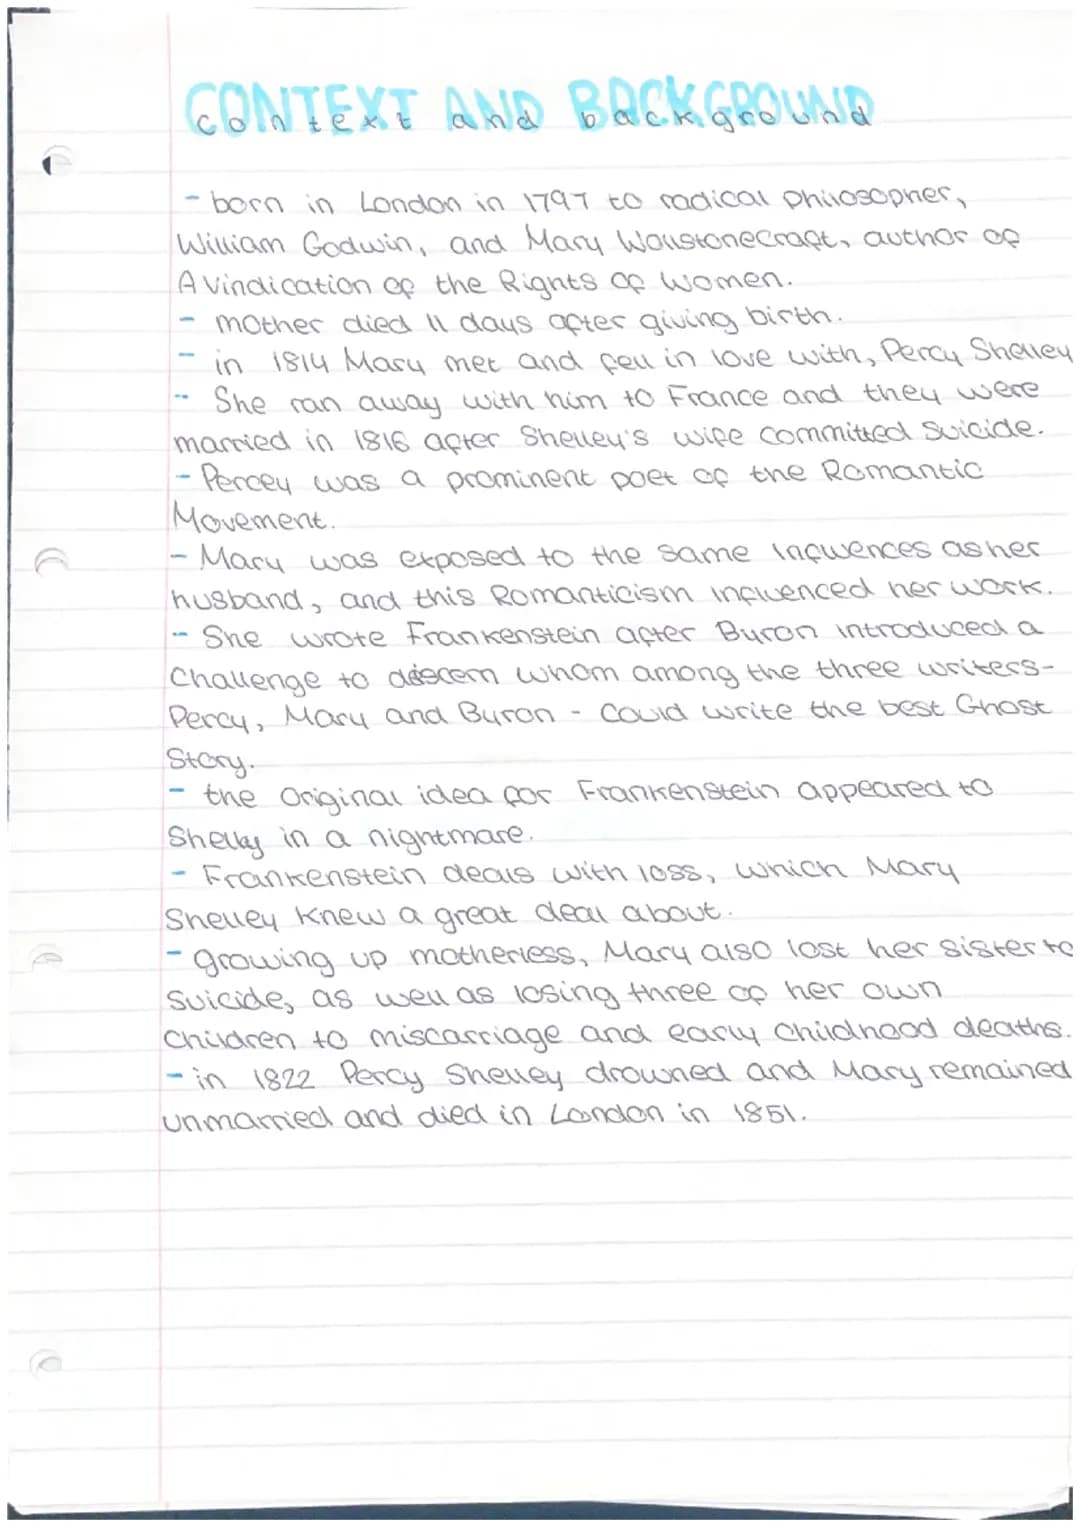 CONTEXT AND BACKGROUND
context and background
- born in London in 1797 to radical philosopher,
William Godwin, and Mary Wollstonecraft, author of
A Vindication of the Rights of Women.
- mother died 11 days after giving birth.
- in 1814 Mary met and fell in love with, Percy Shelley
- She ran away with him to France and they were
married in 1816 after Shelley's wife committed suicide.
- Percey was a prominent poet of the Romantic
Movement.
- Mary was exposed to the same influences as her
husband, and this Romanticism influenced her work.
- She wrote Frankenstein after Byron introduced a
Challenge to discern whom among the three writers-
Percy, Mary and Byron - could write the best Ghost
Story.
- the original idea for Frankenstein appeared to
Shelly in a nightmare.
- Frankenstein deals with loss, which Mary
Shelley knew a great deal about.
- growing up motherless, Mary also lost her sister to
suicide, as well as losing three of her own
children to miscarriage and early childhood deaths.
- in 1822 Percy Shelley drowned and Mary remained
unmarried and died in London in 1851.